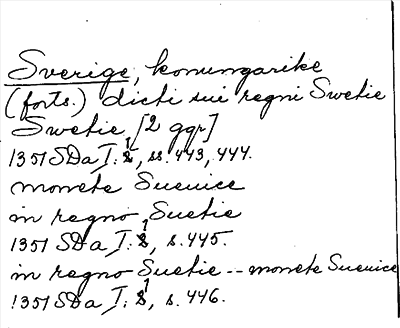 Sverige, konungarike
(forts.) dicti sui regni Swetie
Swetie [2 ggr]
1351 SDa I: 1, ss. 443, 444.
monete Sueuice
in regno Suetie
1351 SDa I: 1, s. 445.
in regno Suetie -- monete Sueuice
1351 SDa I: 1, s. 446.